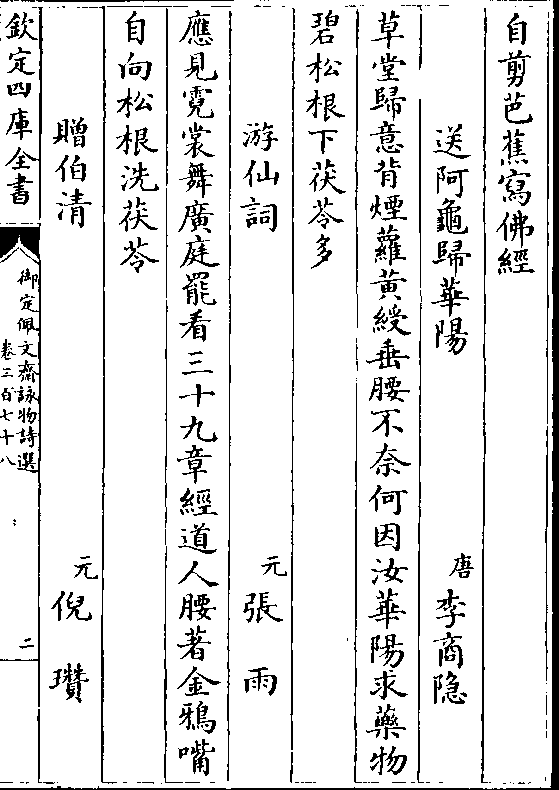 自剪芭蕉寫佛經
送阿龜歸華陽 唐 李商隐
草堂歸意背煙蘿黃綬垂腰不奈何因汝華陽求藥物
碧松根下茯苓多
游仙詞 元 張雨
應見霓裳舞廣庭罷看三十九章經道人腰著金鴉嘴
自向松根洗茯苓
贈伯清 元 倪瓚
欽定四庫全書
御定佩文齋詠物詩選
卷三百七十八
二